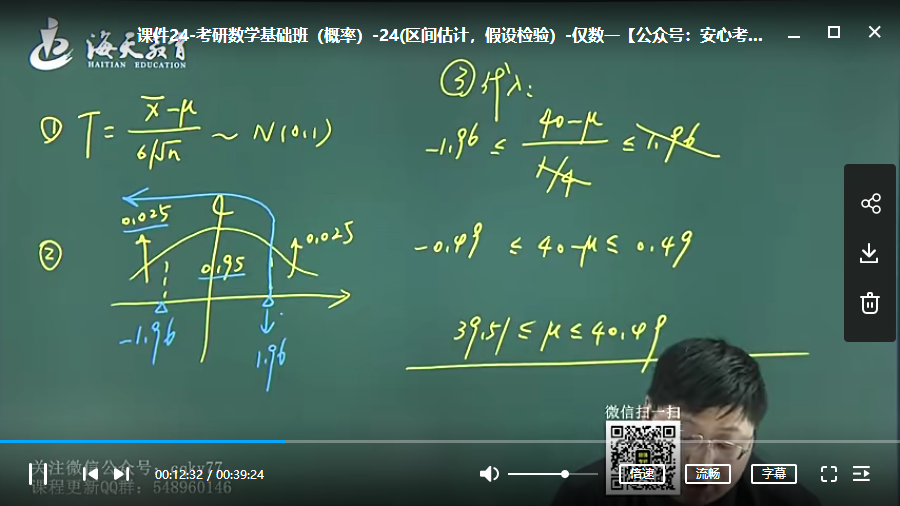 课件24-考研数学基础班（概率）-24(区间估计，假设检验）-仅数一【公众号：安心考...
海天教育
HAITIAN EDUCATION
① T = x̄-μ / σ/√n ~ N(0,1)
②
0.025
0.95
0.025
-1.96
1.96
③ 代入：
-1.96 ≤ 40-μ / 1/4 ≤ 1.96
-0.49 ≤ 40-μ ≤ 0.49
39.51 ≤ μ ≤ 40.49
微信扫一扫
关注微信公众号：
课程更新QQ群：548960146
00:12:32 / 00:39:24
倍速
流畅
字幕